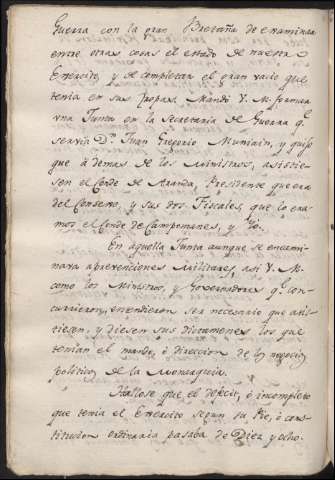 Guerra con la gran Bretaña de examinar
entre otras cosas el estado de nuestro
Exercito, y de completar el gran vacio que
tenia en sus tropas. Mandó V. M. formar
una Junta en la Secretaría de Guerra q.e
servia D. Juan Gregorio Muniain, y quiso
que á demas de los Ministros, asistie-
sen el Conde de Aranda, Presidente que era
del Consejo, y sus dos Fiscales, que lo era-
mos el Conde de Campomanes, y Yó.
En aquella Junta aunque se encami-
nara a prevenciones Militares, asi V. M.
como los Ministros, y Governadores q.e con-
currieron, entendieron ser necesario que asis-
tiesen, y diesen sus dictamenes los que
tenian el mando, ó direccion de los negocios
politicos de la Monarquia.
Hallose que el deficit, ó incompleto
que tenia el Exercito segun su Pie, ó cons-
titucion ordinaria pasaba de Diez y ocho